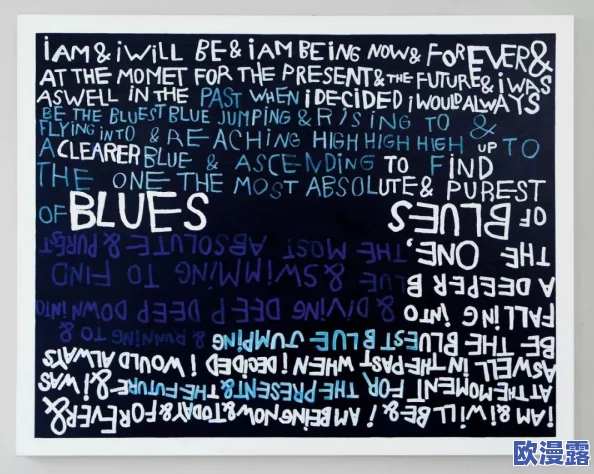 iAM & i WILL BE & iAM BEiNG NOW & FOREVER &
AT THE MOMET FOR THE PRESENT & THE FUTURE & i WAS
ASWELL IN THE PAST WHEN i DECIDED i WOULD ALWAYS
BE THE BLUEST BLUE JUMPING & RISING TO &
FLYING INTO & REACHING HIGH HIGH HIGH UP TO
A CLEARER BLUE & ASCENDING TO FIND
THE ONE THE MOST ABSOLUTE & PUREST
OF BLUES
i AM & i WILL BE & i AM BEiNG NOW & TODAY & FOREVER &
AT THE MOMENT FOR THE PRESENT & THE FUTURE & i WAS
ASWELL iN THE PAST WHEN i DECIDED i WOULD ALWAYS
BE THE BLUEST BLUE JUMPiNG & RUNNING TO &
FALLiNG iNTO & DIVING DEEP DEEP DOWN iNTO
A DEEPER BLUE & SWiMMiNG TO FIND
THE ONE, THE MOST ABSOLUTE & PUREST
OF BLUES
欧漫露